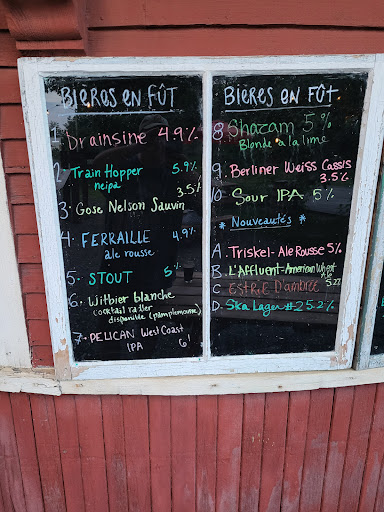 BIÈRES EN FÛT
1. Drainsine 4.9%
2. Train Hopper 5.9%
neipa
3.5%
3. Gose Nelson Sauvin
4. FERRAILLE 4.9%
ale rousse
5. STOUT 5%
6. Witbier blanche
(cocktail radler
disponible (pamplemousse)
7. PELICAN West Coast
IPA 6!
BIÈRES EN FÛT
8. Shazam 5%
Blonde à la lime
9. Berliner Weiss Cassis
3.5%
10 Sour IPA 5%
* Nouveautés *
A. Triskel - Ale Rousse 5%
B. L'Affluent - American Wheat
C ESTRIE D'ambrée
D. Ska Lager #2 5.2%